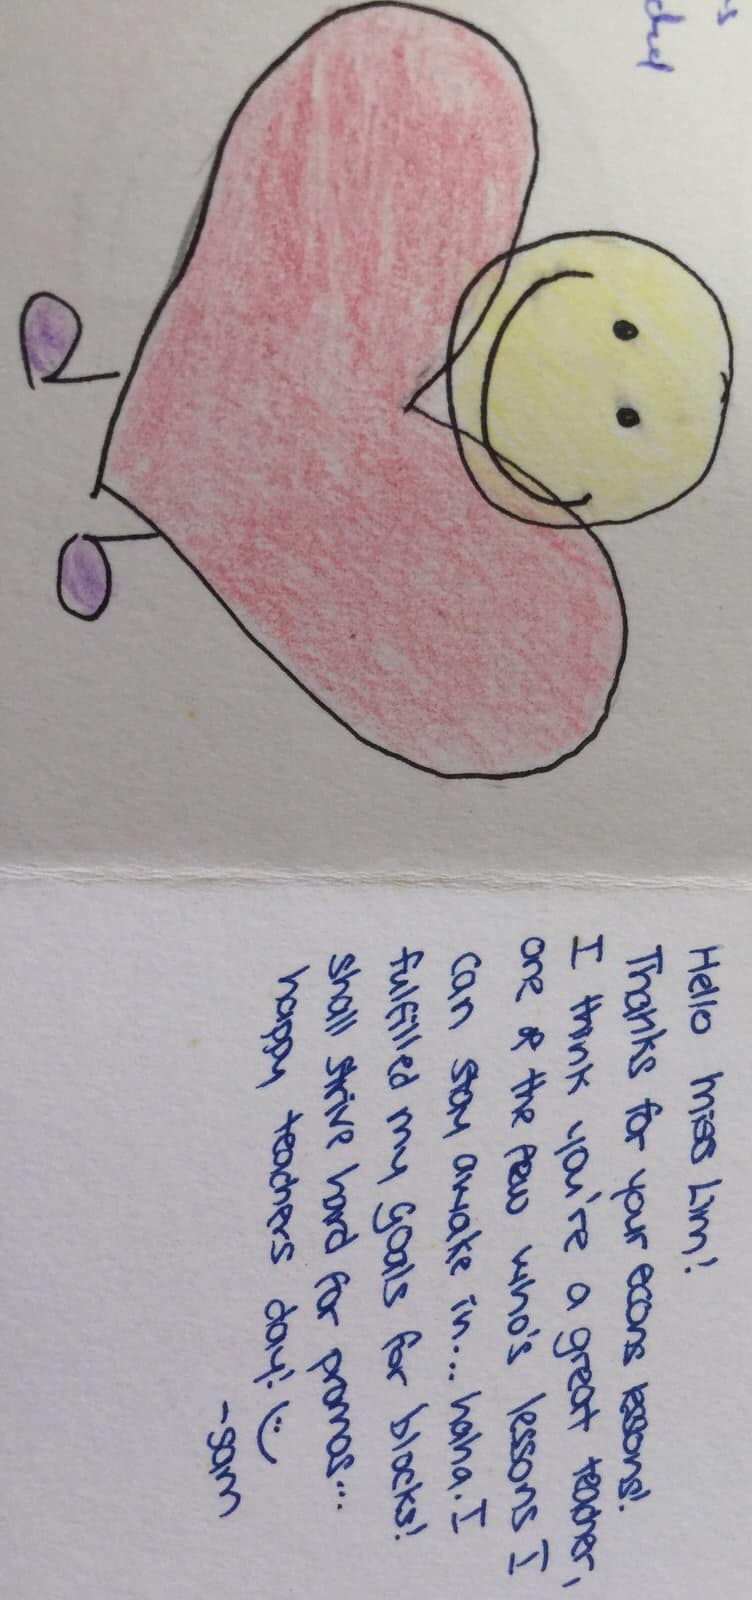 Hello miss Lim!
Thanks for your econs lessons!
I think you're a great teacher,
one of the few who's lessons I
can stay awake in... haha. I
fulfilled my goals for blocks!
shall strive hard for promos...
happy teachers day! :)
-sam